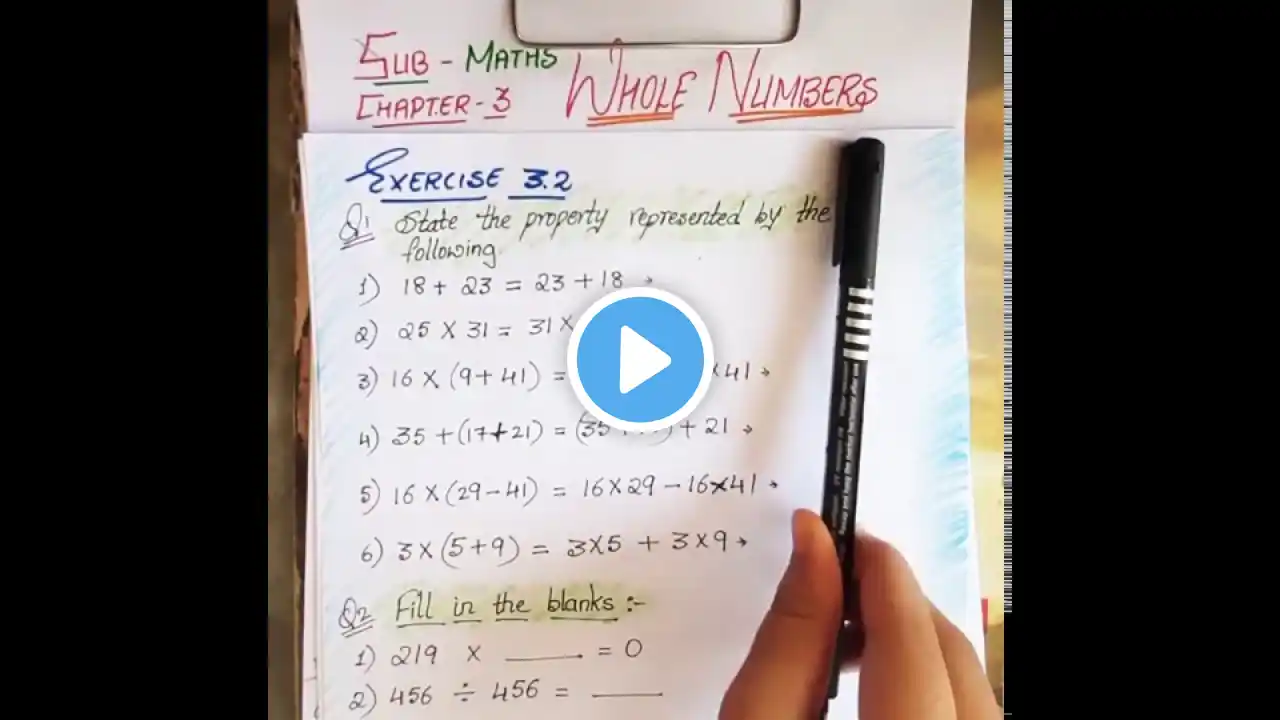 SUB - MATHS
CHAPTER - 3
WHOLE NUMBERS
EXERCISE 3.2
Q1 State the property represented by the
following.
1) 18 + 23 = 23 + 18 →
2) 25 × 31 = 31 ×
3) 16 × (9 + 41) = ×41 →
4) 35 + (17 + 21) = (35 + ) + 21 →
5) 16 × (29 - 41) = 16 × 29 - 16 × 41 →
6) 3 × (5 + 9) = 3 × 5 + 3 × 9 →
Q2 Fill in the blanks :-
1) 219 × ____ = 0
2) 456 ÷ 456 = ____